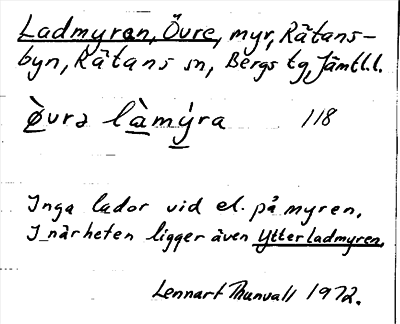 Ladmyran, Övre, myr, Rätans-
byn, Rätans sn, Bergs tg, Jämtl.l.
ø̀vrə là̱mý̱ra 118
Inga lador vid el. på myren.
I närheten ligger även Ytterladmyren.
Lennart Thunvall 1972.